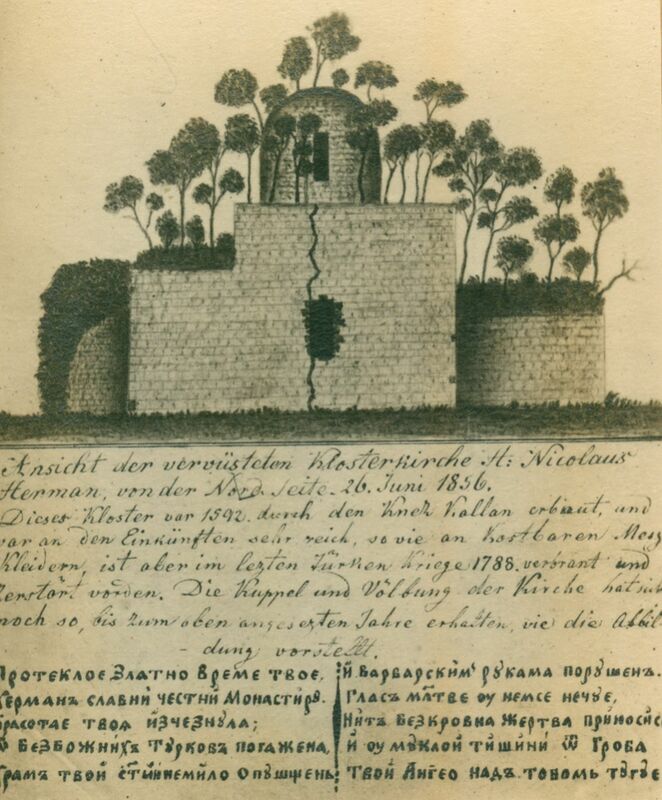 Ansicht der vervüsteten Klosterkirche H: Nicolaus
Herman, von der Nord. Seite. 26. Juni 1856.
Dieses Kloster var 1592. durch den Knez Kallan erbaut, und
var an den Einkünften sehr reich, so vie an Kostbaren Mesz
Kleidern, ist aber im lezten Türken Kriege 1788. verbrant und
Zerstört vorden. Die Kuppel und Völbung der Kirche hat sich
noch so, bis zum oben angesezten Jahre erhalten, vie die Abbil
- dung vorstellt.
Протекло е Златно Време твое,
Керманъ славнй честнй Монастирѹ.
Красотае твоя изчезнула;
Ѿ Безбожнихъ Турковъ погажена,
Храмъ твой немило опушшенъ
Й варварским рукама порушенъ.
Гласъ млтве оу немсе нечуе,
Нитъ Безкровна Жертва приносисе
Й оу муклой тишини Ѿ Гроба
Твой Ангео надъ товомь тугуе